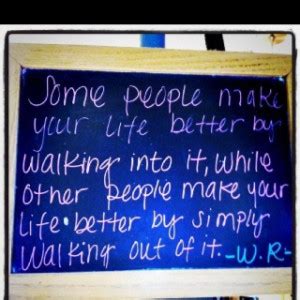 Some people make
your life better by
walking into it, while
other people make your
life better by simply
walking out of it. -W.R-